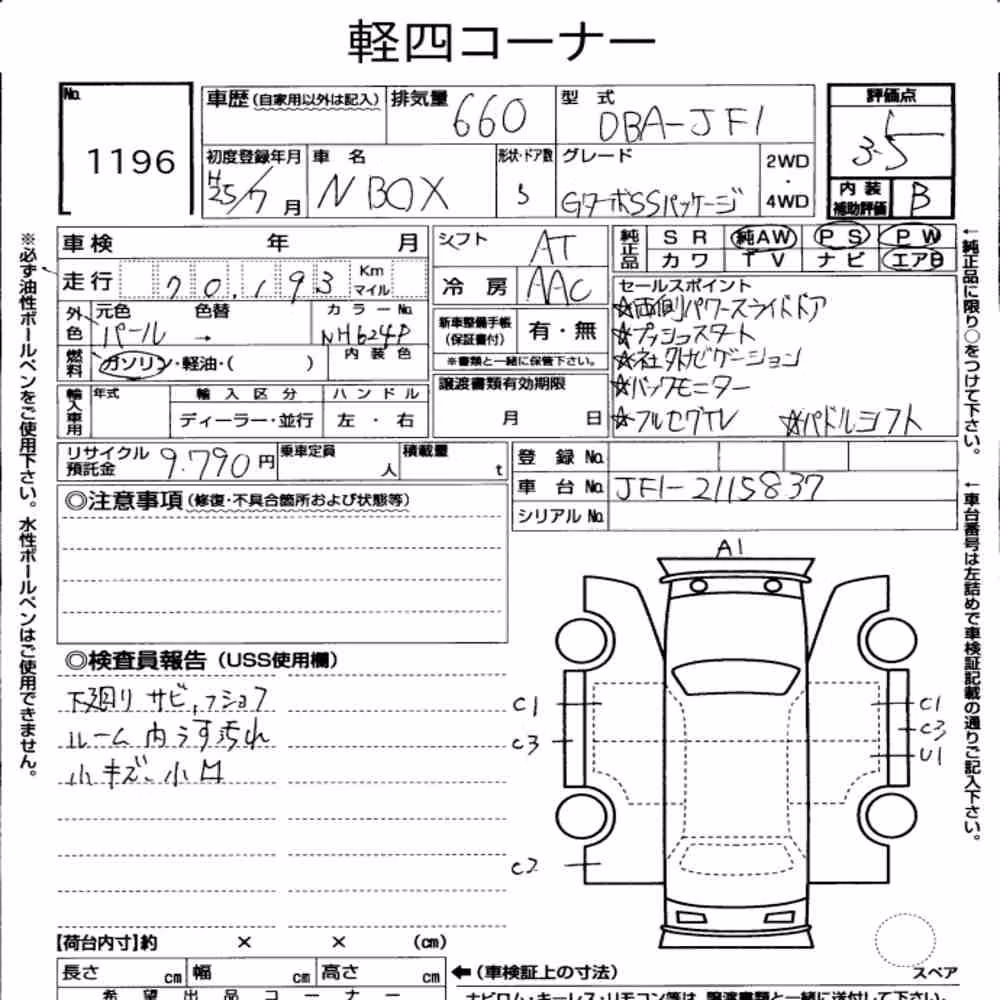 軽四コーナー
No. 1196
車歴(自家用以外は記入) 排気量 660 型式 DBA-JF1
評価点 3.5
初度登録年月 H25/7月 車名 N BOX 形状・ドア数 5 グレード GターボSSパッケージ 2WD・4WD
内装補助評価 B
車検 年 月 シフト AT 純正品 SR 純AW PS PW
カワ TV ナビ エアB
走行 70.193 Km マイル 冷房 AAC
外色 元色 パール 色替 → カラーNo. NH624P
新車整備手帳(保証書付) 有・無
※書類と一緒に保管下さい。
燃料 ガソリン・軽油・( ) 内装色
セールスポイント
☆両側パワースライドドア
☆プッシュスタート
☆社外ナビゲーション
☆バックモニター
☆フルセグTV ☆パドルシフト
輸入車用 年式 輸入区分 ハンドル
ディーラー・並行 左・右
譲渡書類有効期限
月 日
リサイクル預託金 9.790円 乗車定員 人 積載量 t
登録No.
車台No. JF1-2115837
シリアルNo.
◎注意事項(修復・不具合箇所および状態等)
◎検査員報告(USS使用欄)
下廻りサビ,フショク
ルーム内うす汚れ
小キズ、小凹
A1
C1
C3
C2
C1
C3
U1
【荷台内寸】約 × × (cm)
長さ cm 幅 cm 高さ cm
←(車検証上の寸法)
スペア
希望出品コーナー
ナビロム・キーレス・リモコン等は、譲渡書類と一緒に送付して下さい。
※必ず油性ボールペンをご使用下さい。水性ボールペンはご使用できません。
←純正品に限り○をつけて下さい。
←車台番号は左詰めで車検証記載の通りご記入下さい。